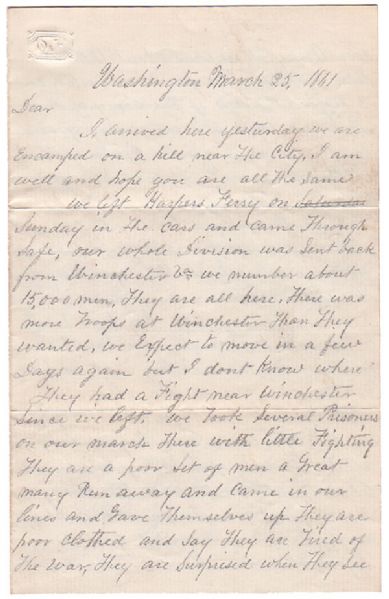 Washington March 25, 1861
Dear
I arrived here yesterday we are
Encamped on a hill near the City, I am
well and hope you are all the same
we left Harpers Ferry on Saturday
Sunday in the cars and came through
safe, our whole Division was sent back
from Winchester Va we number about
15,000 men, They are all here, there was
more Troops at Winchester than they
wanted, we Expect to move in a few
Days again but I dont know where
They had a Fight near Winchester
since we left. we took several Prisoners
on our march there with little Fighting
They are a poor set of men a Great
many Run away and came in our
lines and Gave themselves up They are
poor clothed and say They are tired of
the war, They are surprised when they see